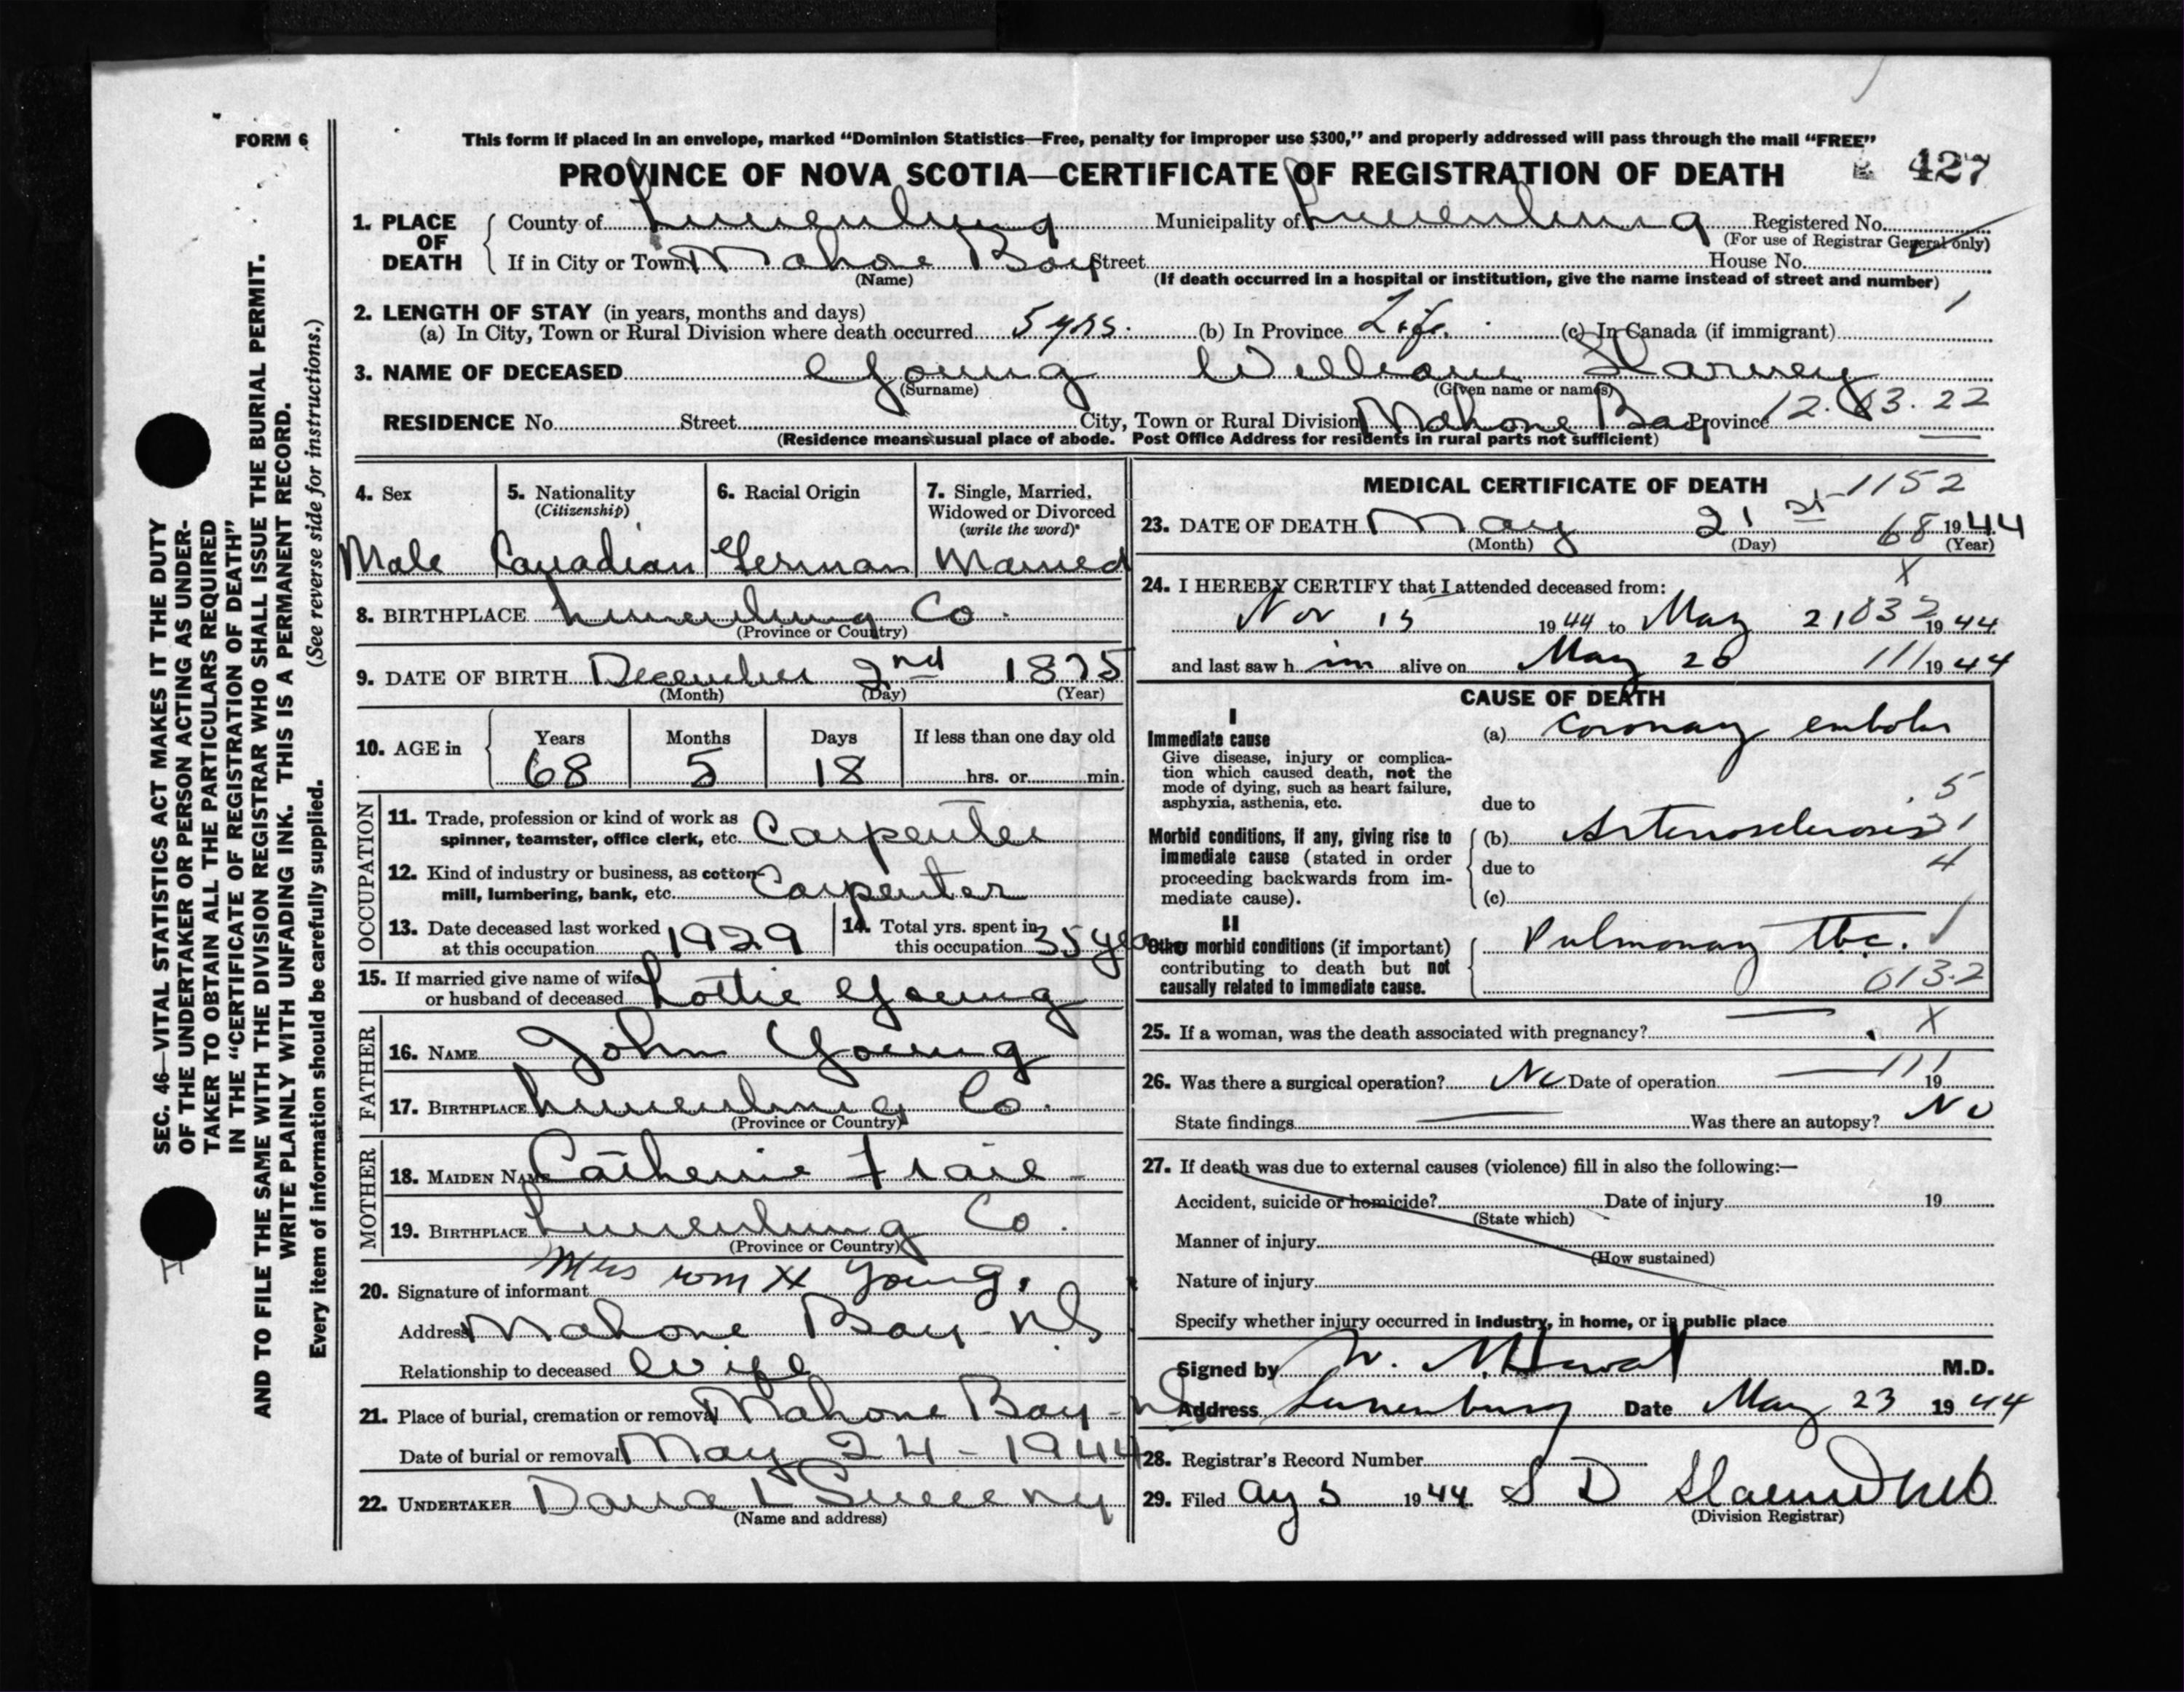 FORM 6
This form if placed in an envelope, marked “Dominion Statistics—Free, penalty for improper use $300,” and properly addressed will pass through the mail “FREE”
PROVINCE OF NOVA SCOTIA—CERTIFICATE OF REGISTRATION OF DEATH 427
1. PLACE OF DEATH
County of Lunenburg Municipality of Lunenburg Registered No.
(For use of Registrar General only)
If in City or Town Mahone Bay Street House No.
(Name) (If death occurred in a hospital or institution, give the name instead of street and number)
2. LENGTH OF STAY (in years, months and days)
(a) In City, Town or Rural Division where death occurred 5 yrs. (b) In Province Life. (c) In Canada (if immigrant)
3. NAME OF DECEASED Young William Harvey
(Surname) (Given name or names)
RESIDENCE No. Street City, Town or Rural Division Mahone Bay Province 12.63.22
(Residence means usual place of abode. Post Office Address for residents in rural parts not sufficient)
4. Sex
Male
5. Nationality
(Citizenship)
Canadian
6. Racial Origin
German
7. Single, Married, Widowed or Divorced
(write the word)
Married
8. BIRTHPLACE Lunenburg Co.
(Province or Country)
9. DATE OF BIRTH December 2nd 1875
(Month) (Day) (Year)
10. AGE in
Years Months Days If less than one day old
68 5 18 hrs. or min.
OCCUPATION
11. Trade, profession or kind of work as
spinner, teamster, office clerk, etc. Carpenter
12. Kind of industry or business, as cotton-
mill, lumbering, bank, etc. Carpenter
13. Date deceased last worked
at this occupation 1929
14. Total yrs. spent in
this occupation 35 years
15. If married give name of wife
or husband of deceased Lottie Young
FATHER
16. NAME John Young
17. BIRTHPLACE Lunenburg Co.
(Province or Country)
MOTHER
18. MAIDEN NAME Catherine
19. BIRTHPLACE Lunenburg Co.
(Province or Country)
20. Signature of informant Mrs Wm H Young.
Address Mahone Bay - NS
Relationship to deceased Wife
21. Place of burial, cremation or removal Mahone Bay - NS
Date of burial or removal May 24 - 1944
22. UNDERTAKER
(Name and address)
MEDICAL CERTIFICATE OF DEATH 1152
23. DATE OF DEATH May 21st 68 1944
(Month) (Day) (Year)
24. I HEREBY CERTIFY that I attended deceased from: X
Nov 15 1944 to May 21 032 1944
and last saw him alive on May 20 111 1944
CAUSE OF DEATH
I
Immediate cause
Give disease, injury or complica-
tion which caused death, not the
mode of dying, such as heart failure,
asphyxia, asthenia, etc.
(a) Coronary embolus
due to 5
Morbid conditions, if any, giving rise to
immediate cause (stated in order
proceeding backwards from im-
mediate cause).
(b) Arteriosclerosis
due to 4
(c)
II
Other morbid conditions (if important)
contributing to death but not
causally related to immediate cause.
Pulmonary tbc.
013.2
25. If a woman, was the death associated with pregnancy? — X
26. Was there a surgical operation? No Date of operation — 111 19
State findings — Was there an autopsy? No
27. If death was due to external causes (violence) fill in also the following:—
Accident, suicide or homicide? Date of injury 19
(State which)
Manner of injury
(How sustained)
Nature of injury
Specify whether injury occurred in industry, in home, or in public place
Signed by M.D.
Address Lunenburg Date May 23 1944
28. Registrar's Record Number
29. Filed 1944
(Division Registrar)
SEC. 46—VITAL STATISTICS ACT MAKES IT THE DUTY
OF THE UNDERTAKER OR PERSON ACTING AS UNDER-
TAKER TO OBTAIN ALL THE PARTICULARS REQUIRED
IN THE “CERTIFICATE OF REGISTRATION OF DEATH”
AND TO FILE THE SAME WITH THE DIVISION REGISTRAR WHO SHALL ISSUE THE BURIAL PERMIT.
WRITE PLAINLY WITH UNFADING INK. THIS IS A PERMANENT RECORD.
Every item of information should be carefully supplied. (See reverse side for instructions.)